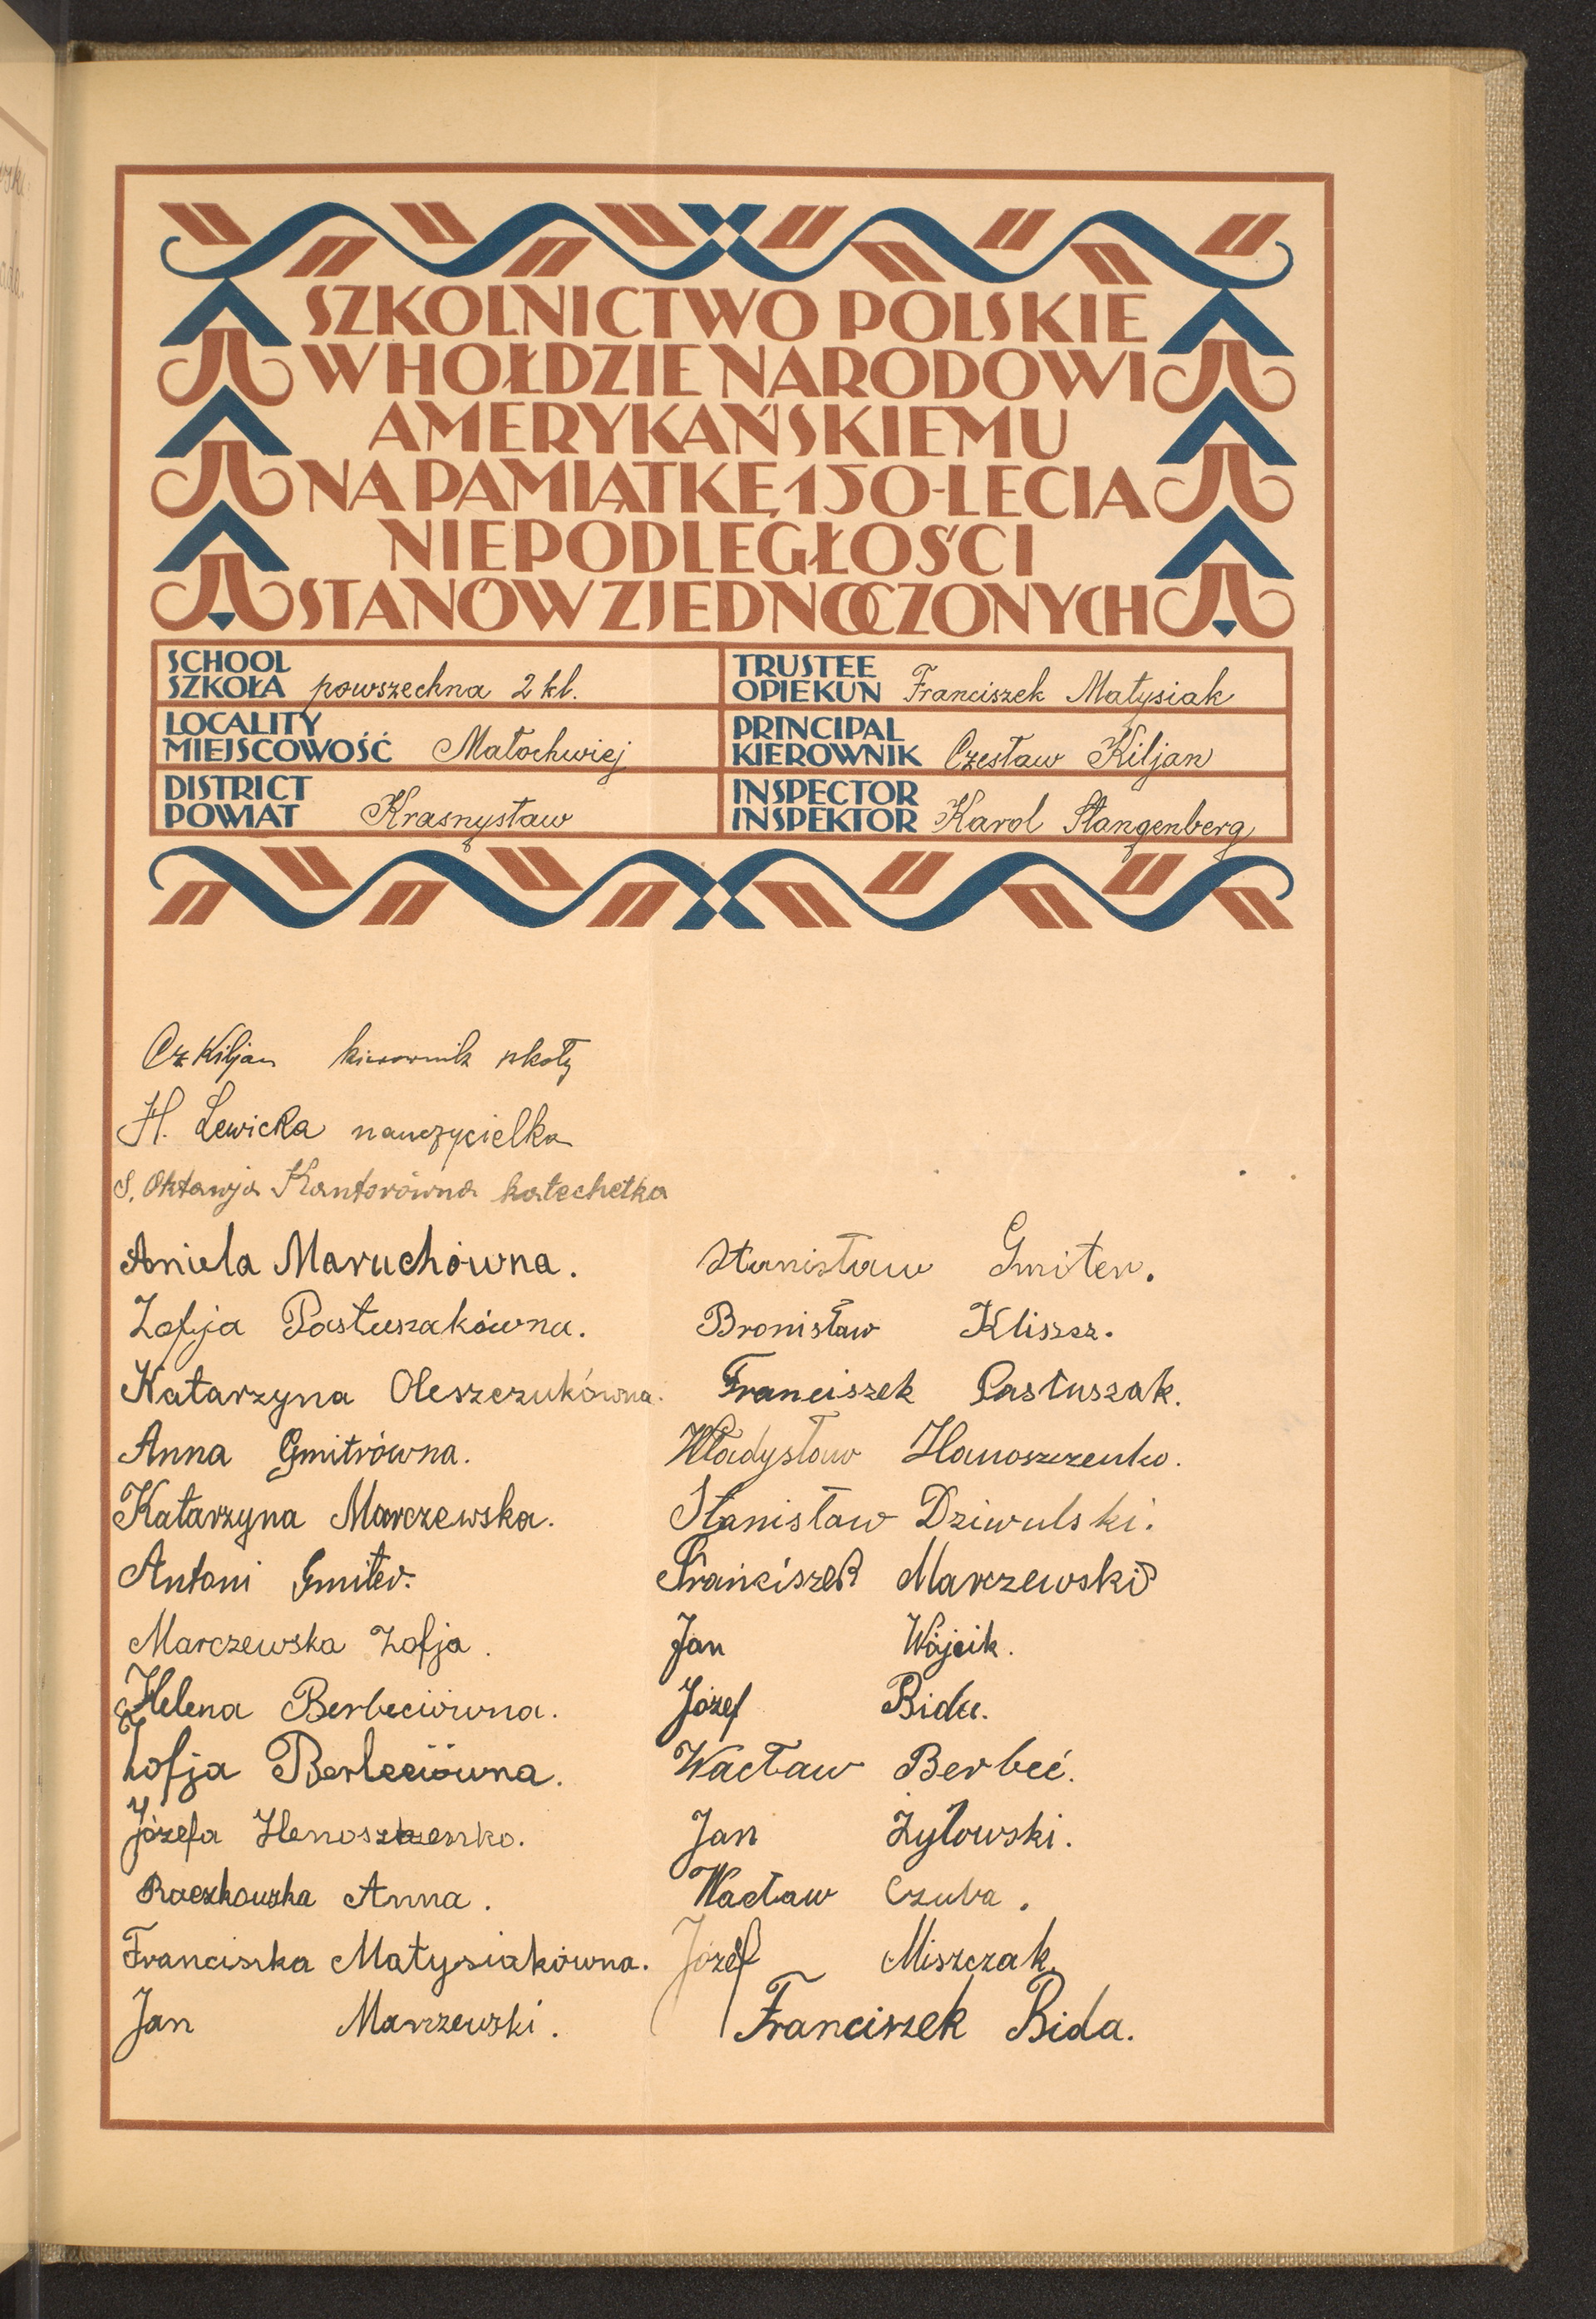 SZKOLNICTWO POLSKIE
W HOŁDZIE NARODOWI
AMERYKAŃSKIEMU
NA PAMIĄTKĘ 150-LECIA
NIEPODLEGŁOŚCI
STANÓW ZJEDNOCZONYCH
SCHOOL
SZKOŁA powszechna 2 kl.
TRUSTEE
OPIEKUN Franciszek Matysiak
LOCALITY
MIEJSCOWOŚĆ Małochwiej
PRINCIPAL
KIEROWNIK Czesław Kiljan
DISTRICT
POWIAT Krasnystaw
INSPECTOR
INSPEKTOR Karol Stangenberg
Cz Kiljan kierownik szkoły
H. Lewicka nauczycielka
S. Oktawja Kantorówna katechetka
Aniela Maruchówna.
Zofja Pastuszakówna.
Katarzyna Oleszczukówna.
Anna Gmitrówna.
Katarzyna Marczewska.
Antoni Gmiter.
Marczewska Zofja.
Helena Berbeciówna.
Zofja Berbeciówna.
Józefa Hanoszzenko.
Raczkowska Anna.
Franciszka Matysiakówna.
Jan Marczewski.
Stanisław Gmiter.
Bronisław Kliszcz.
Franciszek Pastuszak.
Władysław Hanoszzenko.
Stanisław Dziwulski.
Franciszek Marczewski
Jan Wójcik.
Józef Bida.
Wacław Berbeć.
Jan Żyłowski.
Wacław Czuba.
Józef Miszczak.
Franciszek Bida.